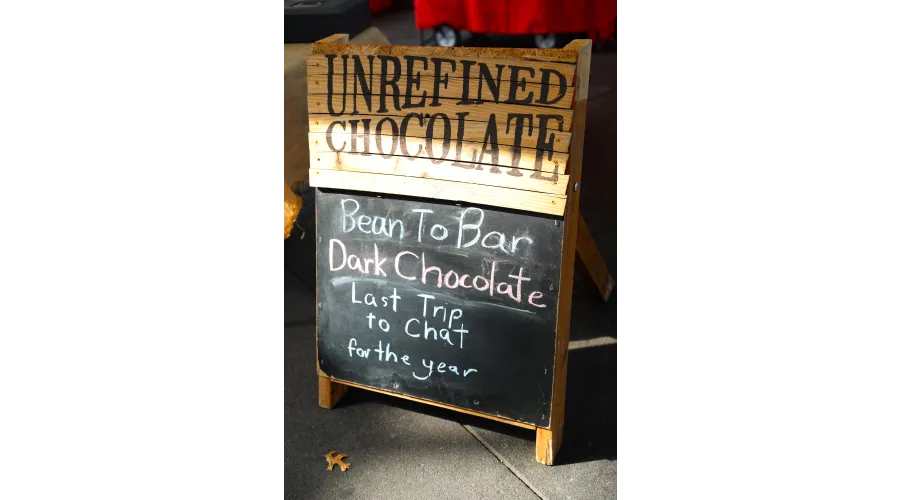 UNREFINED
CHOCOLATE
Bean To Bar
Dark Chocolate
Last Trip
to Chat
for the year